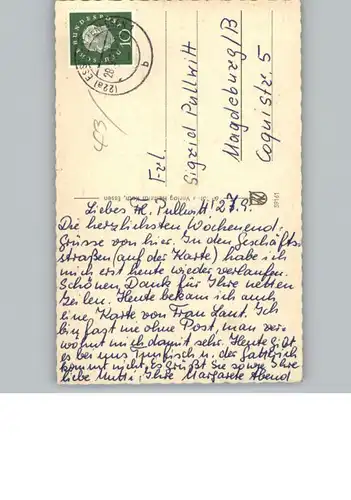 DEUTSCHE BUNDESPOST
10
(22a) ESSEN
Frl.
Sigrid Pullwitt
Magdeburg/B
Coquistr. 5
43
Verlag Essen
59161
Liebes Frl. Pullwitt! 27.9.
Die herzlichsten Wochenend-
Grüsse von hier. In den Geschäfts-
straßen (auf der Karte) habe ich
mich erst heute wieder verlaufen.
Schönen Dank für Ihre netten
Zeilen. Heute bekam ich auch
eine Karte von Frau Laut. Ich
bin fast nie ohne Post, man ver-
wöhnt mich damit sehr. Heute gibt
es bei uns u. der
kommt nicht. Es grüßt Sie sowie Ihre
liebe Mutti, Ihre Margarete Abend